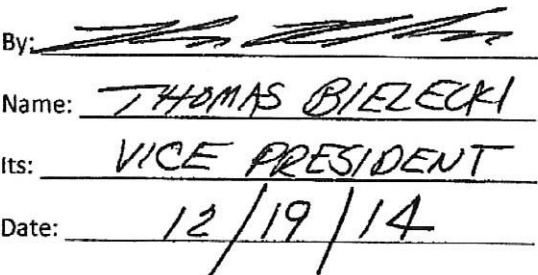 By:
Name: THOMAS BIELECKI
Its: VICE PRESIDENT
Date: 12/19/14